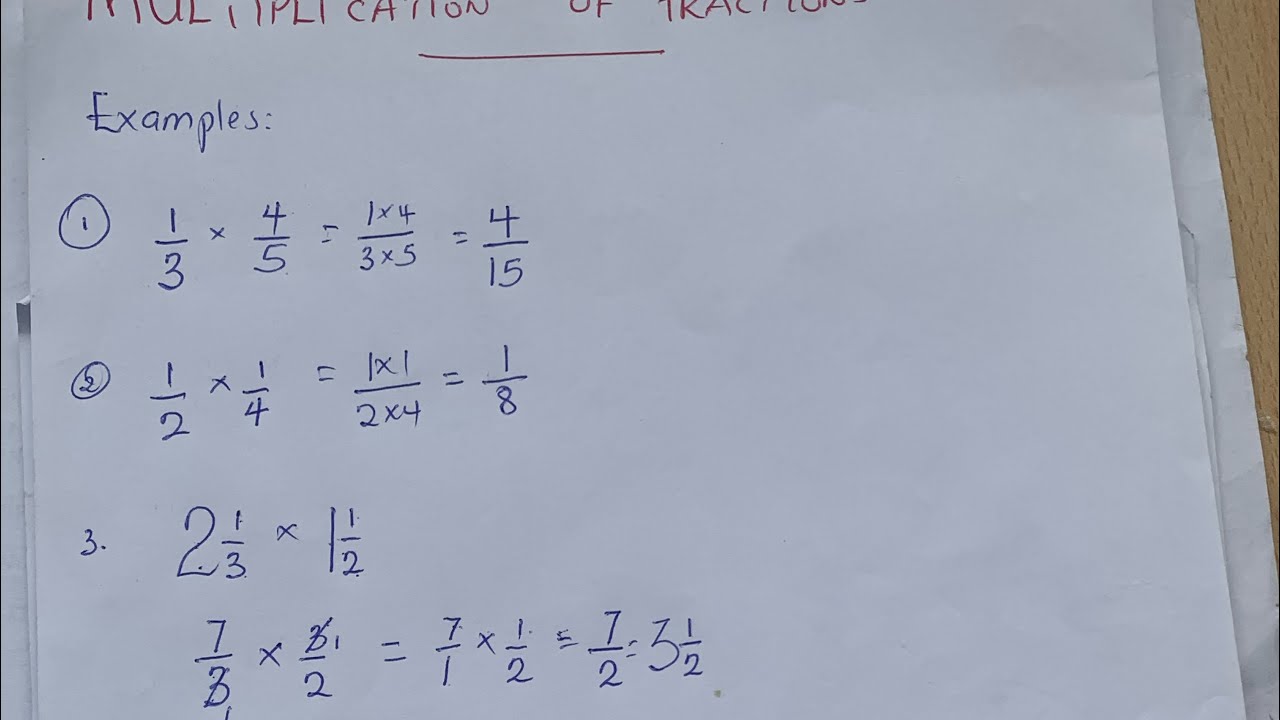 MULTIPLICATION OF FRACTIONS
Examples:
① 1/3 × 4/5 = 1×4/3×5 = 4/15
② 1/2 × 1/4 = 1×1/2×4 = 1/8
3. 2 1/3 × 1 1/2
7/3 1 × 3 1/2 = 7/1 × 1/2 = 7/2 = 3 1/2